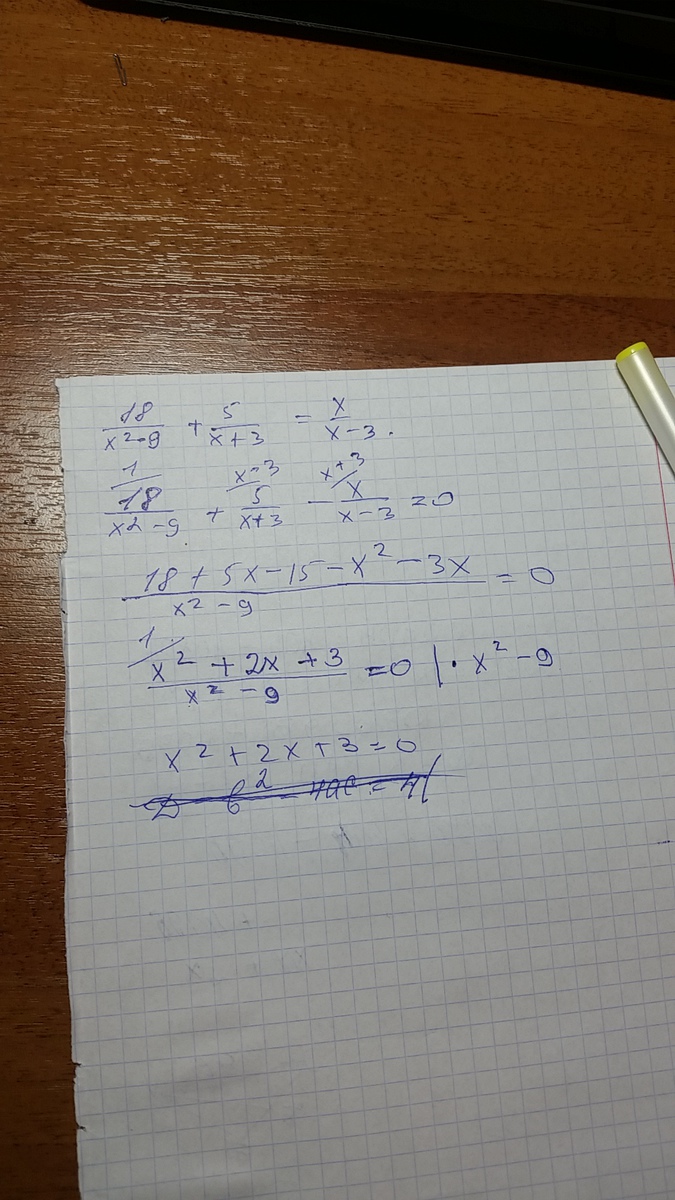 18/(x²-9) + 5/(x+3) = x/(x-3).
1/ 18/(x²-9) + x-3/ 5/(x+3) - x+3/ x/(x-3) = 0
(18 + 5x - 15 - x² - 3x)/(x² - 9) = 0
1/ (x² + 2x + 3)/(x² - 9) = 0 | · x² - 9
x² + 2x + 3 = 0
D b² - 4ac = 4